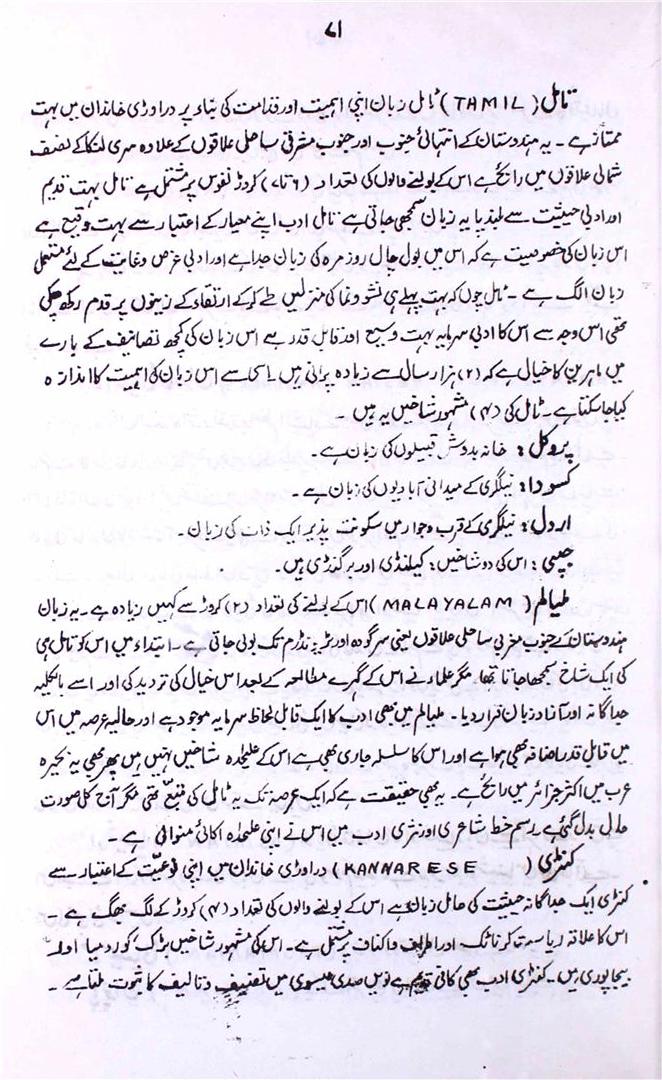 ۷۱
تامل (TAMIL) ٹامل زبان اپنی اہمیت اور قدامت کی بناء پر دراوڑی خاندان میں بہت
ممتاز ہے ۔ یہ ہندوستان کے انتہائی جنوب اور جنوب مشرقی ساحلی علاقوں کے علاوہ سری لنکا کے نصف
شمالی علاقوں میں رائج ہے اس کے بولنے والوں کی تعداد (۶ تا ۷) کروڑ نفوس پر مشتمل ہے تامل بہت قدیم
اور ادبی حیثیت سے بلند پایہ زبان سمجھی جاتی ہے تامل ادب اپنے معیار کے اعتبار سے بہت وقیع ہے
اس زبان کی خصوصیت ہے کہ اس میں بول چال روزمرہ کی زبان جدا ہے اور ادبی غرض وغایت کے لئے مشتمل
زبان الگ ہے ۔ ٹامل چوں کہ بہت پہلے ہی نشو و نما کی منزلیں طے کر کے ارتقاء کے زینوں پر قدم رکھ چکی
تھی اس وجہ سے اس کا ادبی سرمایہ بہت وسیع اور قابل قدر ہے اس زبان کی کچھ تصانیف کے بارے
میں ماہرین کا خیال ہے کہ (۲) ہزار سال سے زیادہ پرانی ہیں ۔ اسی سے اس زبان کی اہمیت کا اندازہ
کیا جا سکتا ہے ۔ ٹامل کی (۴) مشہور شاخیں یہ ہیں ۔
پروکل : خانہ بدوش قبیلوں کی زبان ہے ۔
کسودا : نیلگری کے میدانی آبادیوں کی زبان ہے ۔
اردل : نیلگری کے قرب و جوار میں سکونت پذیر ایک ذات کی زبان ۔
جپی : اس کی دو شاخیں : کیلنڈی اور برگنڈی ہیں ۔
ملیالم (MALAYALAM) اس کے بولنے کی تعداد (۲) کروڑ سے کہیں زیادہ ہے ۔ یہ زبان
ہندوستان کے جنوب مغربی ساحلی علاقوں یعنی سرگودہ اور ٹریونڈرم تک بولی جاتی ہے ۔ ابتداء میں اس کو تامل ہی
کی ایک شاخ سمجھا جاتا تھا ۔ مگر علماء نے اس کے گہرے مطالعہ کے بعد اس خیال کی تردید کی اور اسے بالکلیہ
جداگانہ اور آزاد زبان قرار دیا ۔ ملیالم میں بھی ادب کا ایک قابل لحاظ سرمایہ موجود ہے اور حالیہ عرصہ میں اس
میں قابل قدر اضافہ بھی ہوا ہے اور اس کا سلسلہ جاری بھی ہے اس کے علیحدہ شاخیں نہیں ہیں پھر بھی یہ بحیرہ
عرب میں اکثر جزائر میں رائج ہے ۔ یہ بھی حقیقت ہے کہ ایک عرصہ تک یہ ٹامل کی متبع تھی مگر آج کل صورت
حال بدل گئی ہے رسم خط شاعری اور نثری ادب میں اس نے اپنی علیحدہ اکائی منوالی ہے ۔
کنڑی (KANNARESE) دراوڑی خاندان میں اپنی نوعیت کے اعتبار سے
کنڑی ایک جداگانہ حیثیت کی حامل زبان ہے اس کے بولنے والوں کی تعداد (۴) کروڑ کے لگ بھگ ہے ۔
اس کا علاقہ ریاست کرناٹک اور اطراف و اکناف پر مشتمل ہے ۔ اس کی مشہور شاخیں بڑک کوردمیا اور
بیجاپوری ہیں ۔ کنڑی ادب بھی کافی ہے نویں صدی عیسوی میں تصنیف و تالیف کا ثبوت ملتا ہے ۔